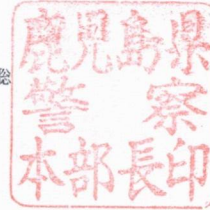 鹿児島県
警察
本部長印
訟